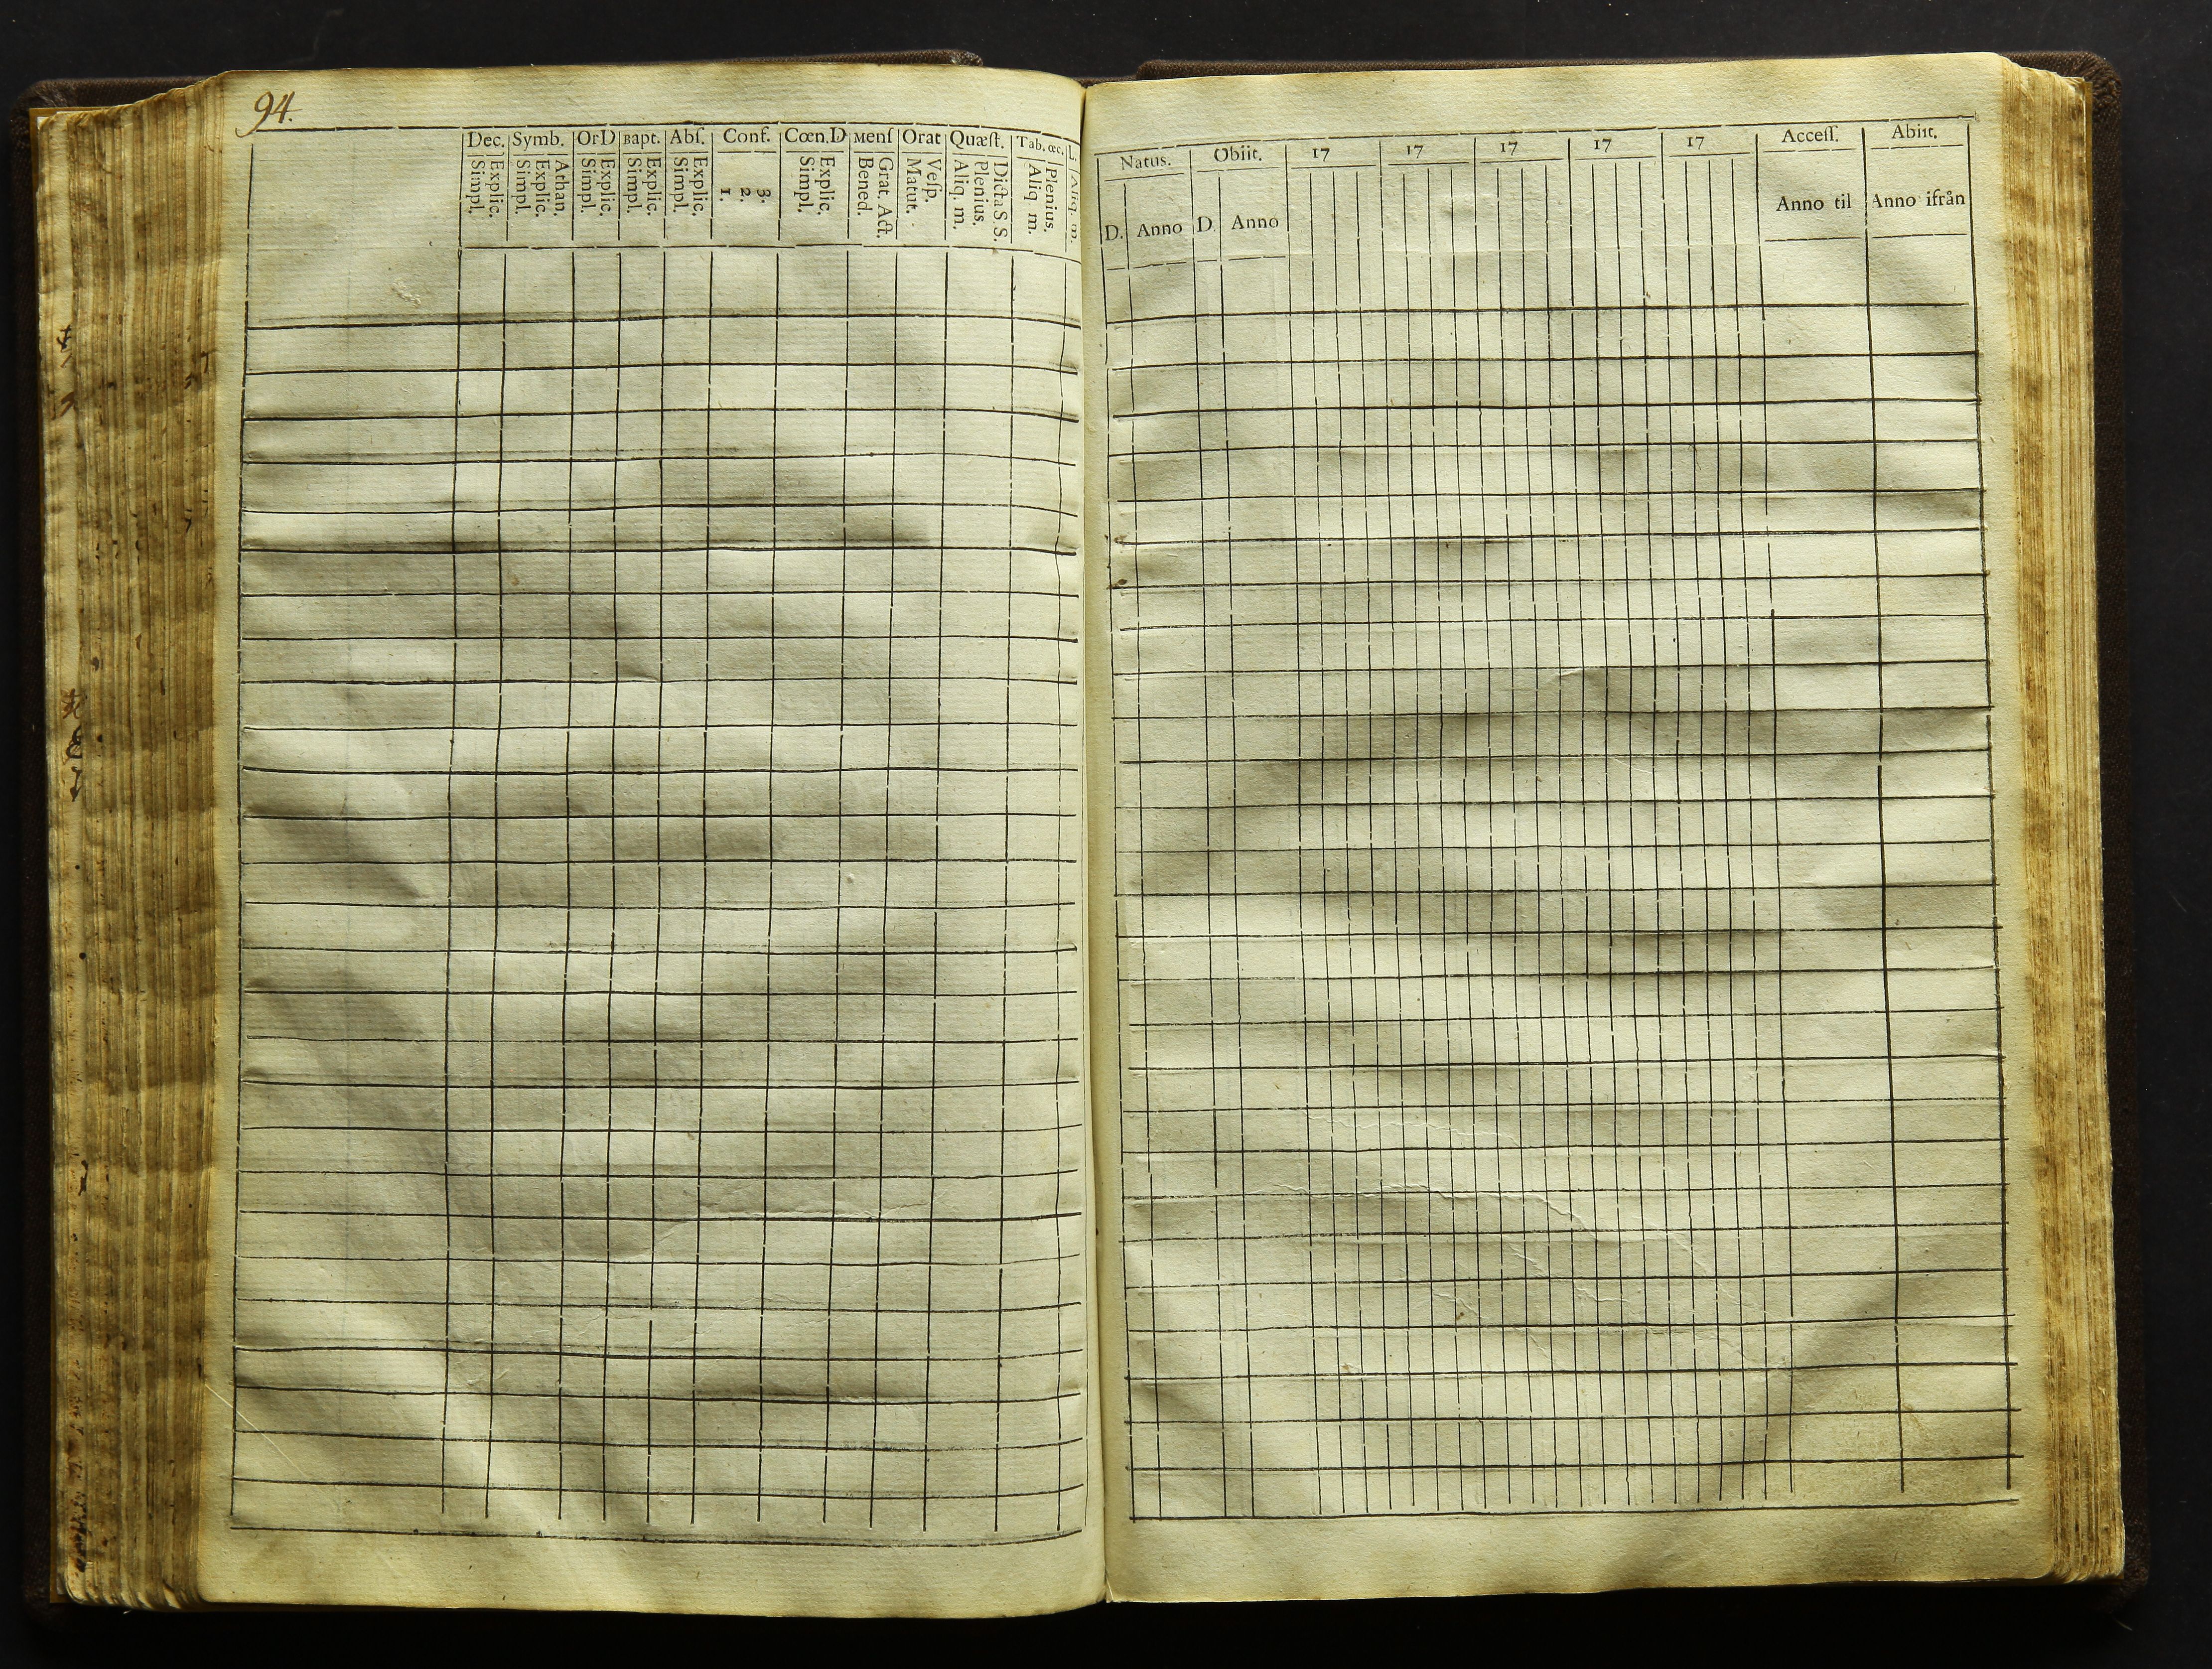 94.
Dec. Symb. OrD Bapt. Abſ. Conf. Cœn.D Menſ Orat Quæſt. Tab. œc. L.
Explic. Simpl.
Athan. Explic. Simpl.
Explic. Simpl.
Explic. Simpl.
Explic. Simpl.
3. 2. 1.
Explic. Simpl.
Grat. Act. Bened.
Veſp. Matut.
Dicta S S. Plenius. Aliq. m.
Plenius. Aliq m.
Aliq. m.
Natus. Obiit. 17 17 17 17 17 Acceſſ. Abiit.
D. Anno D. Anno Anno til Anno ifrån